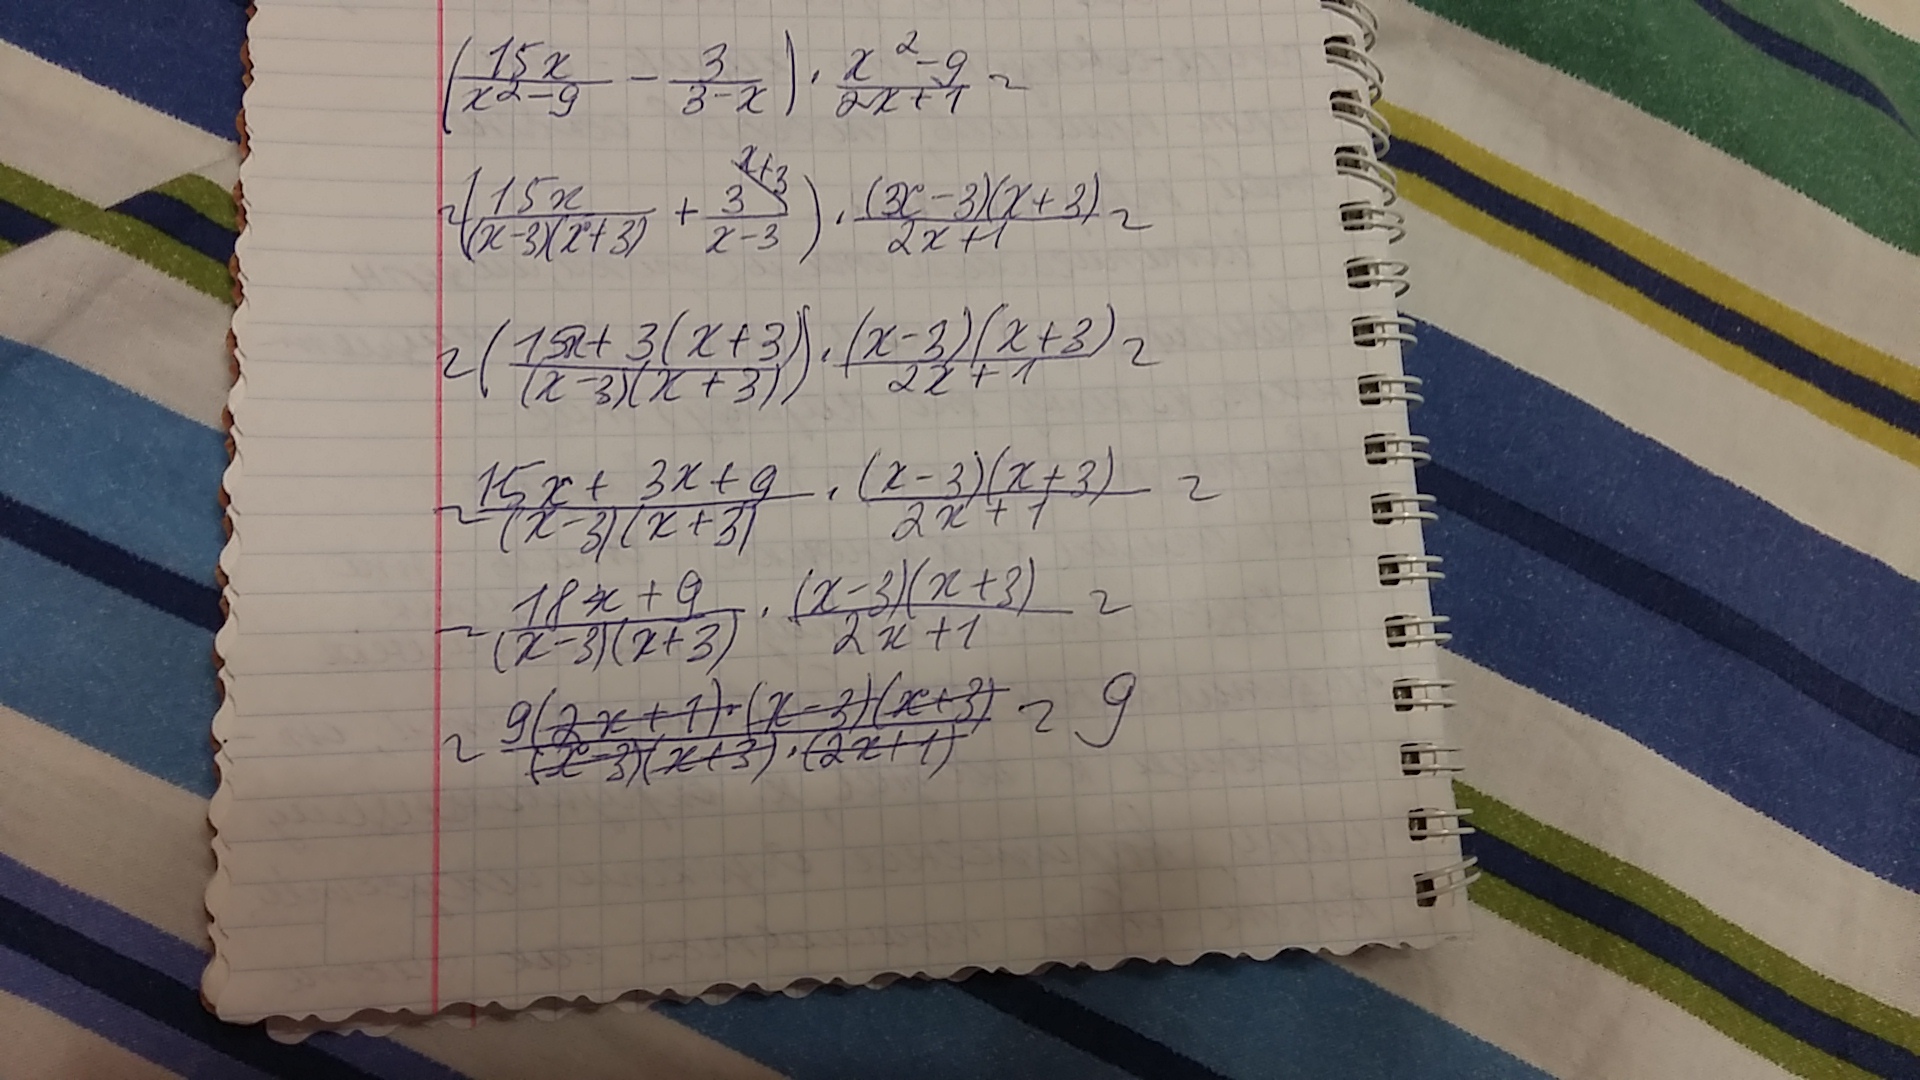 (15x/(x²-9) - 3/(3-x)) · (x²-9)/(2x+1) =
= (15x/((x-3)(x+3)) + 3^(x+3)/(x-3)) · (3x-3)(x+3)/(2x+1) =
= ((15x+3(x+3))/((x-3)(x+3))) · (x-3)(x+3)/(2x+1) =
= (15x+3x+9)/((x-3)(x+3)) · (x-3)(x+3)/(2x+1) =
= (18x+9)/((x-3)(x+3)) · (x-3)(x+3)/(2x+1) =
= 9(2x+1)·(x-3)(x+3)/((x-3)(x+3)·(2x+1)) = 9